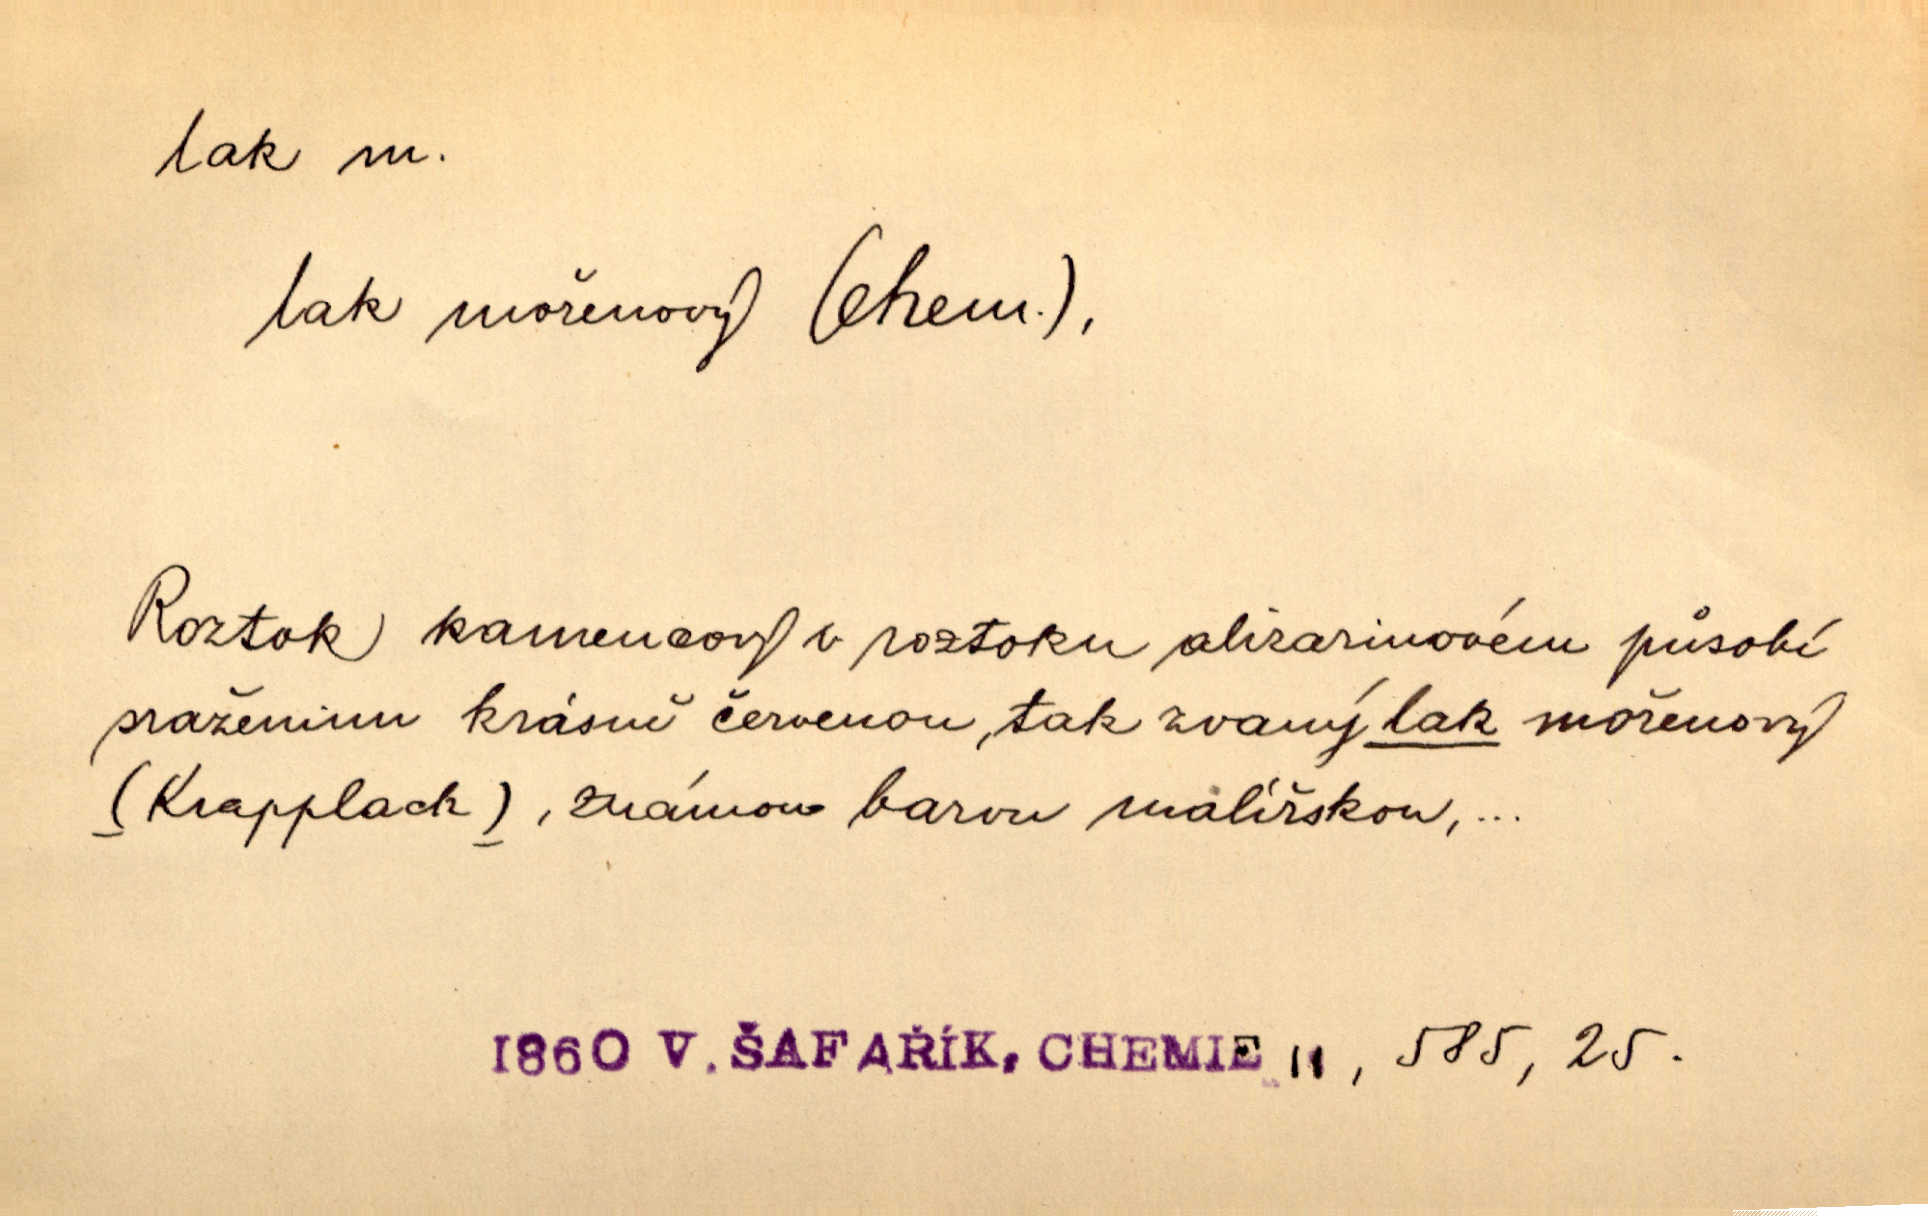 lak m.
lak mořenový (chem.),
Roztok kamencový v roztoku alizarinovém působí
sraženinu krásně červenou, tak zvaný lak mořenový
(Krapplack), známou barvu malířskou, ...
1860 V. ŠAFAŘÍK, CHEMIE II, 585, 25.